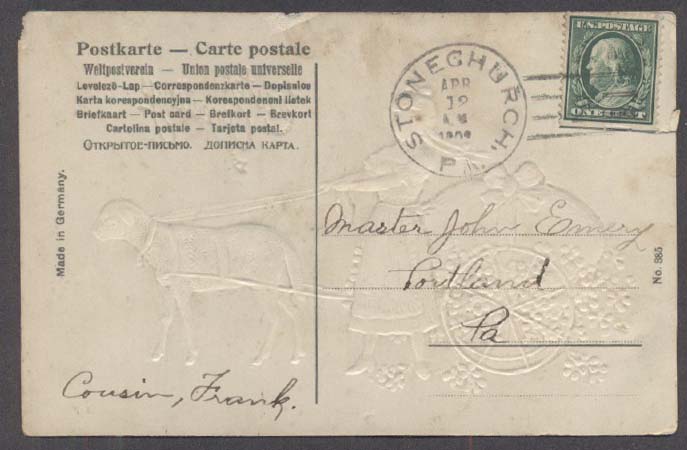 Postkarte — Carte postale
Weltpostverein — Union postale universelle
Levelező-Lap — Correspondenzkarte — Dopisnice
Karta korespondencyjna — Korespondenčni listek
Briefkaart — Post card — Brefkort — Brevkort
Cartolina postale — Tarjeta postal.
Открытое-письмо. Дописна карта.
Made in Germany.
STONECHURCH,
APR
12
PA.
U.S. POSTAGE
ONE CENT
Master John Emery
Portland
Pa
No. 385
Cousin, Frank.